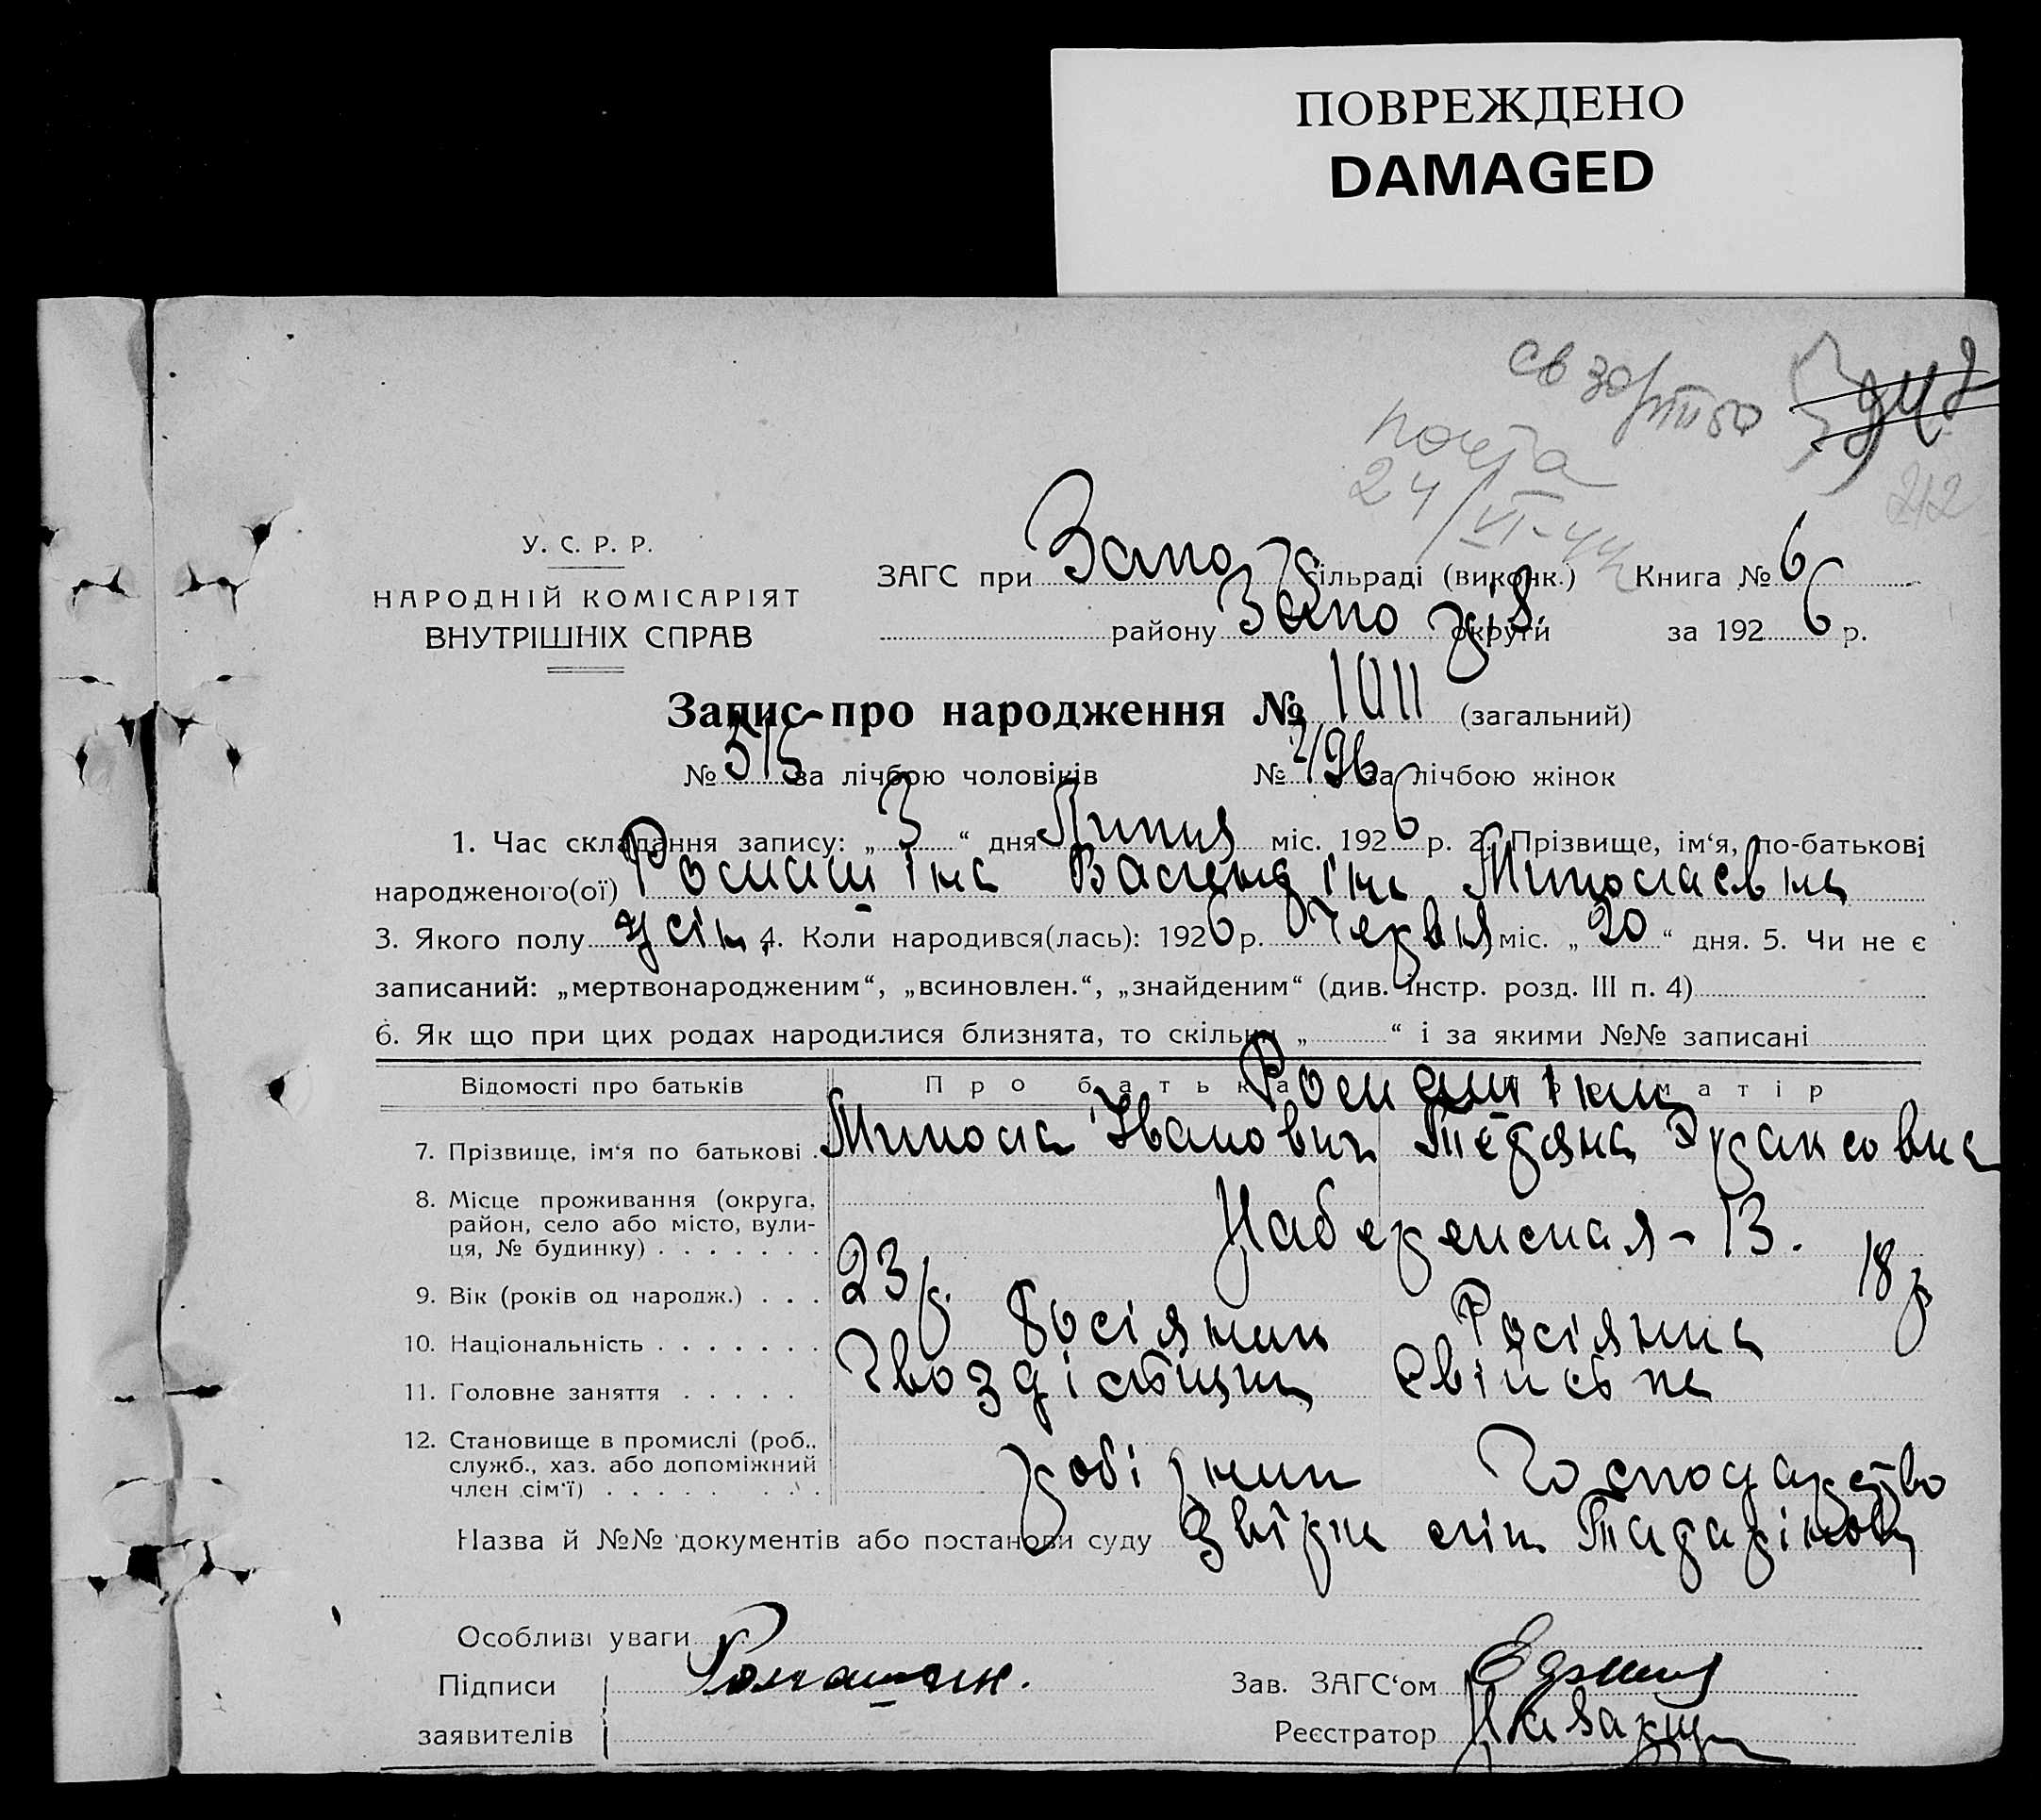 ПОВРЕЖДЕНО
DAMAGED
почта
24/VI-44
212
У. С. Р. Р.
НАРОДНІЙ КОМІСАРІЯТ
ВНУТРІШНІХ СПРАВ
ЗАГС при Запо сільраді (виконк.) Книга № 6
району Запо округи за 1926 р.
Запис про народження № 1011 (загальний)
№ 515 за лічбою чоловіків № 496 за лічбою жінок
1. Час складання запису: „3“ дня Липня міс. 1926 р. 2. Прізвище, ім‘я, по-батькові
народженого(ої) Ромашіна Валендіна Миколаєвна
3. Якого полу жін. 4. Коли народився(лась): 1926 р. Червня міс. „20“ дня. 5. Чи не є
записаний: „мертвонародженим“, „всиновлен.“, „знайденим“ (див. інстр. розд. III п. 4)
6. Як що при цих родах народилися близнята, то скільки „ “ і за якими №№ записані
Відомості про батьків Про батька Про матір
Ромашіни
7. Прізвище, ім‘я по батькові . Микола Іванович Тетяна
8. Місце проживання (округа, район, село або місто, вули-ця, № будинку) . . . . . . . Набережная - 13.
9. Вік (років од народж.) . . . 23 р. 18 р
10. Національність . . . . . . . Росіянин Росіянка
11. Головне заняття . . . . . Свійське
12. Становище в промислі (роб., служб., хаз. або допоміжний член сім‘ї) . . . . . . . робітник Господарство
Назва й №№ документів або постанови суду
Особливі уваги
Підписи Ромашин. Зав. ЗАГС‘ом
заявителів Реєстратор